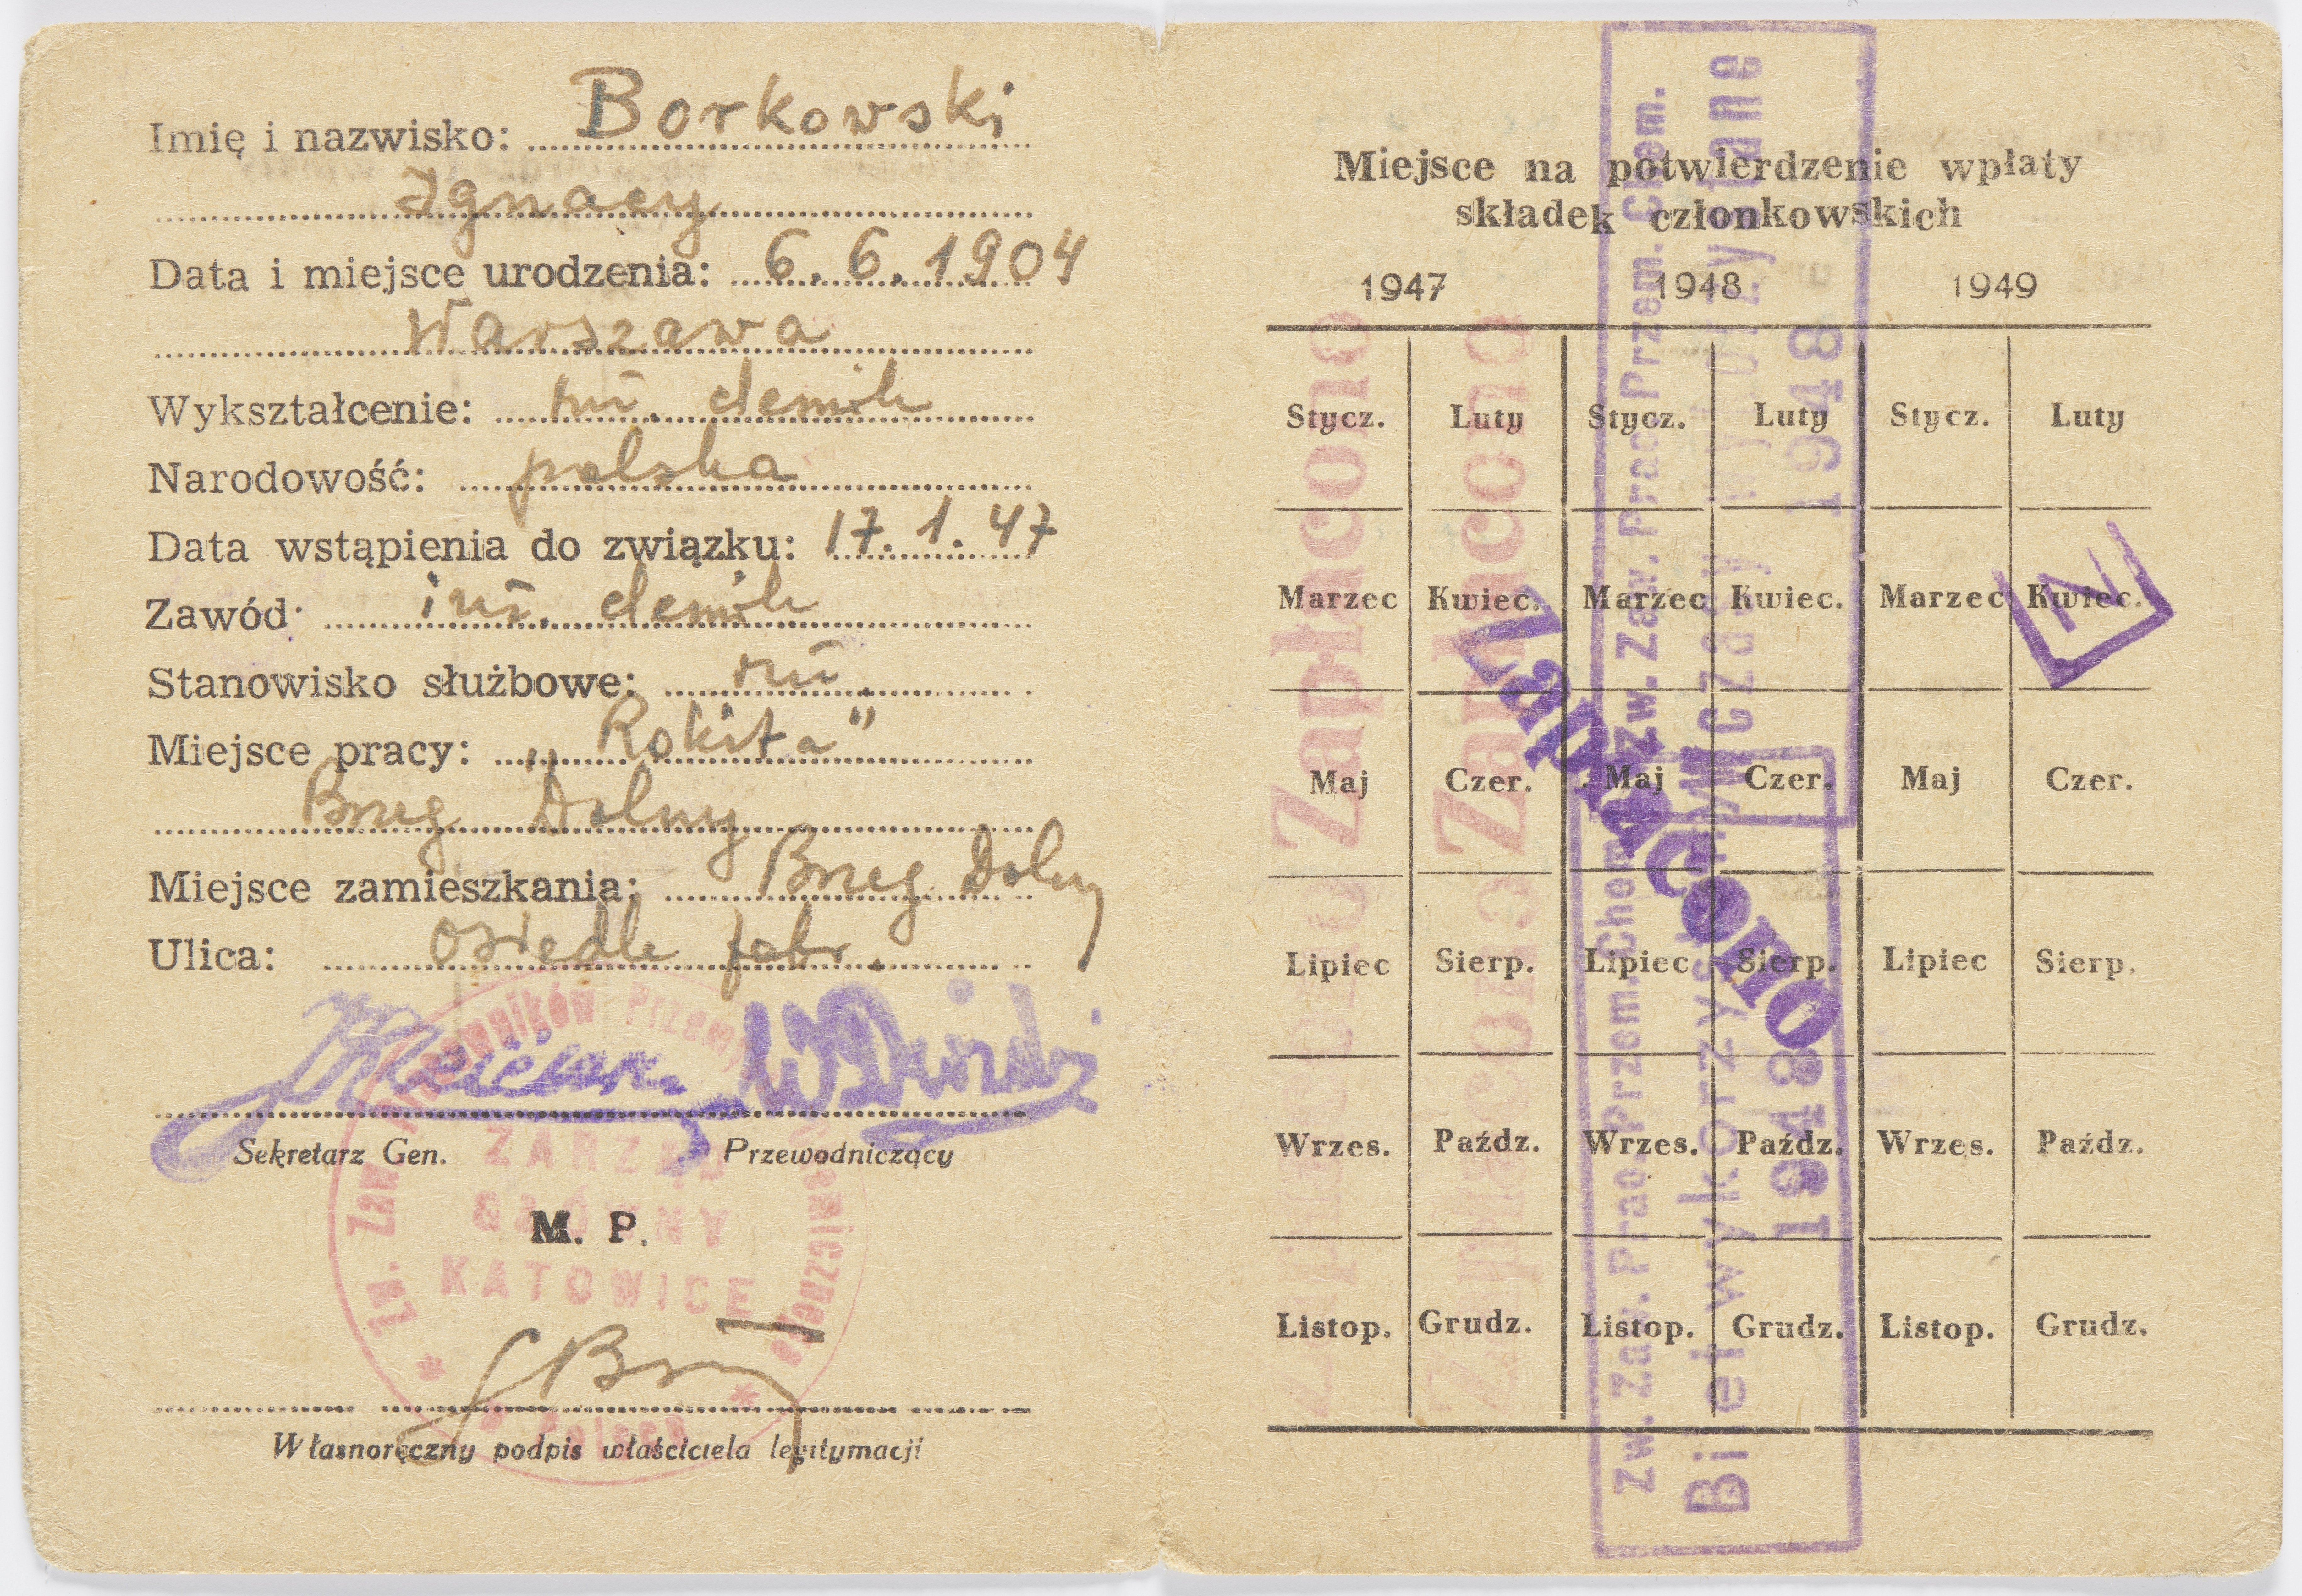 Imię i nazwisko: Borkowski
Ignacy
Data i miejsce urodzenia: 6.6.1904
Warszawa
Wykształcenie: inż. chemik
Narodowość: polska
Data wstąpienia do związku: 17.1.47
Zawód: inż. chemik
Stanowisko służbowe: inż.
Miejsce pracy: „Rokita"
Brzeg Dolny
Miejsce zamieszkania: Brzeg Dolny
Ulica: osiedle fabr.
Sekretarz Gen. Przewodniczący
M. P.
Zw. Zaw. Pracowników Przem. Chemicznego
ZARZĄD
GŁÓWNY
KATOWICE
w Polsce
Własnoręczny podpis właściciela legitymacji
Miejsce na potwierdzenie wpłaty
składek członkowskich
1947 1948 1949
Stycz. Luty Stycz. Luty Stycz. Luty
Marzec Kwiec. Marzec Kwiec. Marzec Kwiec.
Maj Czer. Maj Czer. Maj Czer.
Lipiec Sierp. Lipiec Sierp. Lipiec Sierp.
Wrzes. Paźdz. Wrzes. Paźdz. Wrzes. Paźdz.
Listop. Grudz. Listop. Grudz. Listop. Grudz.
Zapłacono
Zapłacono
Zapłacono
Zapłacono
Zapłacono
Zw. Zaw. Prac. Przem. Chem.
Wczasy wykorzystane
1948
Zw. Zaw. Prac. Przem. Chem.
Bilet wykorzyst
1948
N